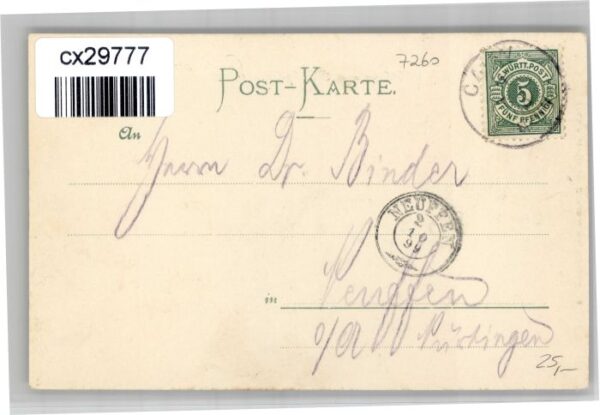 cx29777
7260
POST-KARTE.
K. WÜRTT. POST
5
FÜNF PFENNIG
An
Herrn Dr. Binder
NEUFFEN
2
10
99
in Neuffen
o/A Nürtingen
25,-